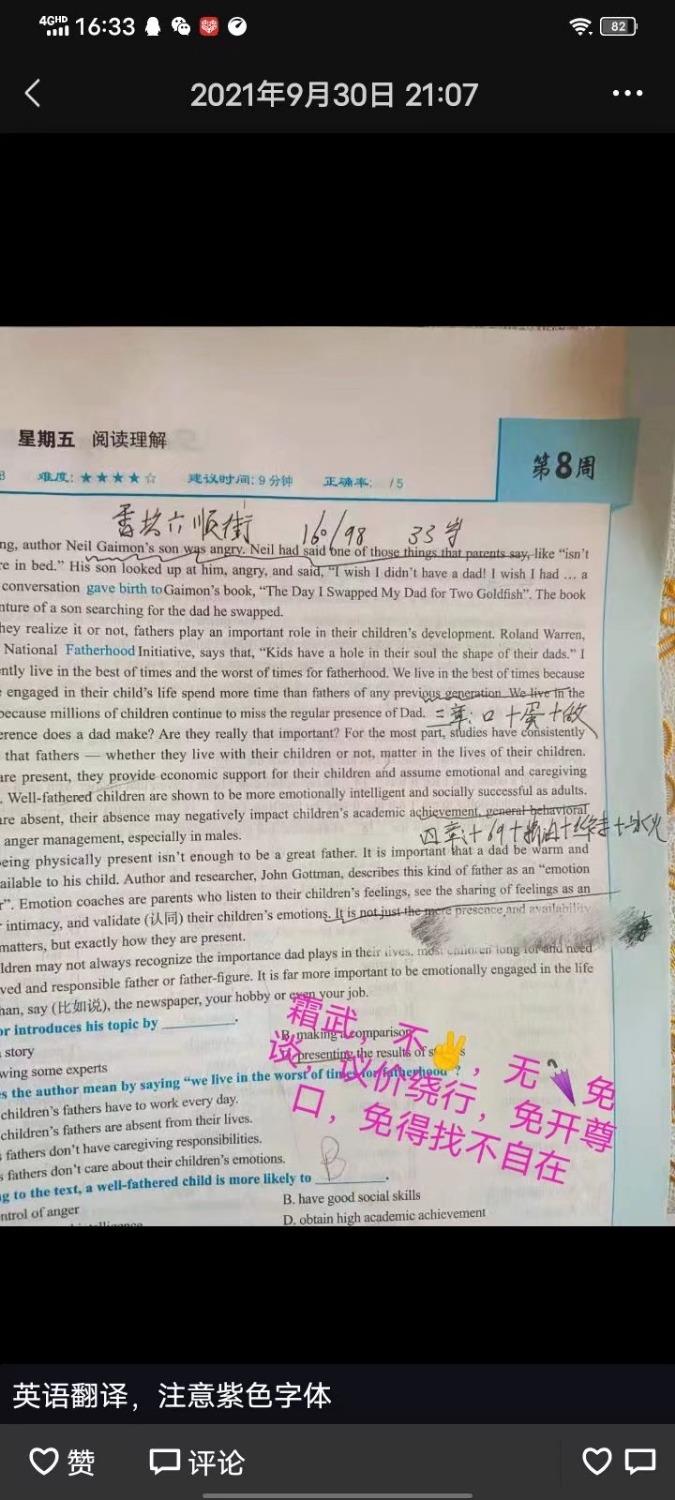 4GHD 16:33 82
2021年9月30日 21:07
星期五 阅读理解
第8周
难度:★★★★☆ 建议时间:9分钟 正确率: /5
六顺街 160/98 33岁
ng, author Neil Gaimon's son was angry. Neil had said one of those things that parents say, like “isn't
e in bed.” His son looked up at him, angry, and said, “I wish I didn't have a dad! I wish I had … a
conversation gave birth to Gaimon's book, “The Day I Swapped My Dad for Two Goldfish”. The book
nture of a son searching for the dad he swapped.
hey realize it or not, fathers play an important role in their children's development. Roland Warren,
National Fatherhood Initiative, says that, “Kids have a hole in their soul the shape of their dads.” I
ntly live in the best of times and the worst of times for fatherhood. We live in the best of times because
engaged in their child's life spend more time than fathers of any previous generation. We live in the
because millions of children continue to miss the regular presence of Dad.
二章:口十蛋十做
erence does a dad make? Are they really that important? For the most part, studies have consistently
that fathers — whether they live with their children or not, matter in the lives of their children.
are present, they provide economic support for their children and assume emotional and caregiving
. Well-fathered children are shown to be more emotionally intelligent and socially successful as adults.
are absent, their absence may negatively impact children's academic achievement, general behavioral
anger management, especially in males.
eing physically present isn't enough to be a great father. It is important that a dad be warm and
ailable to his child. Author and researcher, John Gottman, describes this kind of father as an “emotion
r”. Emotion coaches are parents who listen to their children's feelings, see the sharing of feelings as an
intimacy, and validate (认同) their children's emotions. It is not just the mere presence and availability
matters, but exactly how they are present.
ldren may not always recognize the importance dad plays in their lives, most children long for and need
ved and responsible father or father-figure. It is far more important to be emotionally engaged in the life
han, say (比如说), the newspaper, your hobby or even your job.
or introduces his topic by ________.
story
B. making a comparison
wing some experts
presenting the results of
es the author mean by saying “we live in the worst of times for fatherhood”?
children's fathers have to work every day.
children's fathers are absent from their lives.
fathers don't have caregiving responsibilities.
s fathers don't care about their children's emotions.
B
ng to the text, a well-fathered child is more likely to ________.
ntrol of anger
B. have good social skills
D. obtain high academic achievement
霜武，不✌️，无🌂免
谈，议价绕行，免开尊
口，免得找不自在
英语翻译，注意紫色字体
赞 评论